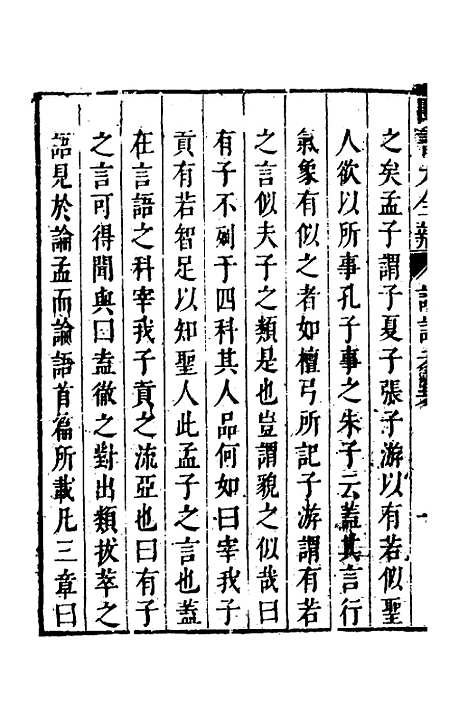 之矣孟子謂子夏子張子游以有若似聖
人欲以所事孔子事之朱子云蓋其言行
氣象有似之者如檀弓所記子游謂有若
之言似夫子之類是也豈謂貌之似哉曰
有子不列于四科其人品何如曰宰我子
貢有若智足以知聖人此孟子之言也蓋
在言語之科宰我子貢之流亞也曰有子
之言可得聞與曰盍徹之對出類拔萃之
語見於論孟而論語首篇所載凡三章曰